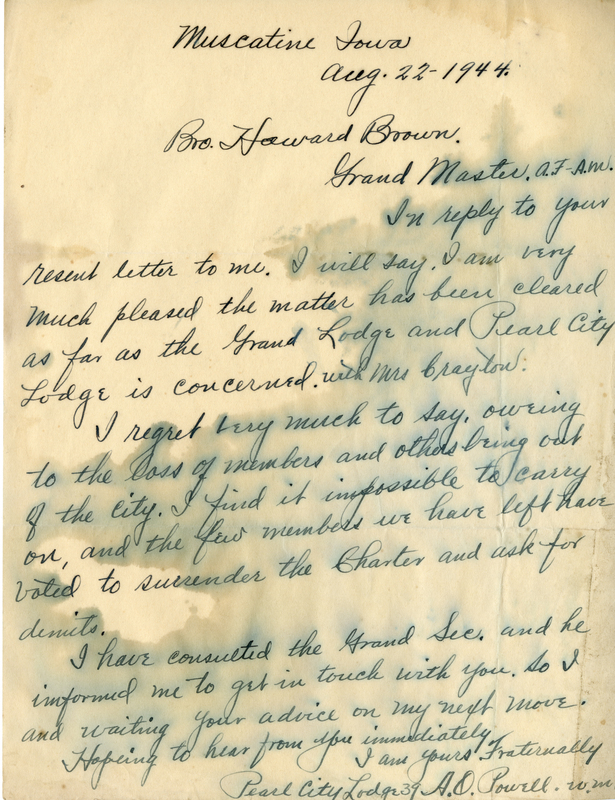 Muscatine Iowa
Aug. 22-1944.
Bro. Howard Brown.
Grand Master. A.F-A.M.
In reply to your
resent letter to me. I will say. I am very
much pleased the matter has been cleared
as far as the Grand Lodge and Pearl City
Lodge is concerned. with Mrs Crayton.
I regret very much to say, oweing
to the loss of members and others being out
of the city. I find it impossible to carry
on, and the few members we have left have
voted to surrender the Charter and ask for
demits.
I have consulted the Grand Sec. and he
imformed me to get in touch with you. So I
and waiting your advice on my next move.
Hopeing to hear from you immediately
I am yours Fraternally
Pearl City Lodge 39 A.O. Powell. W.M